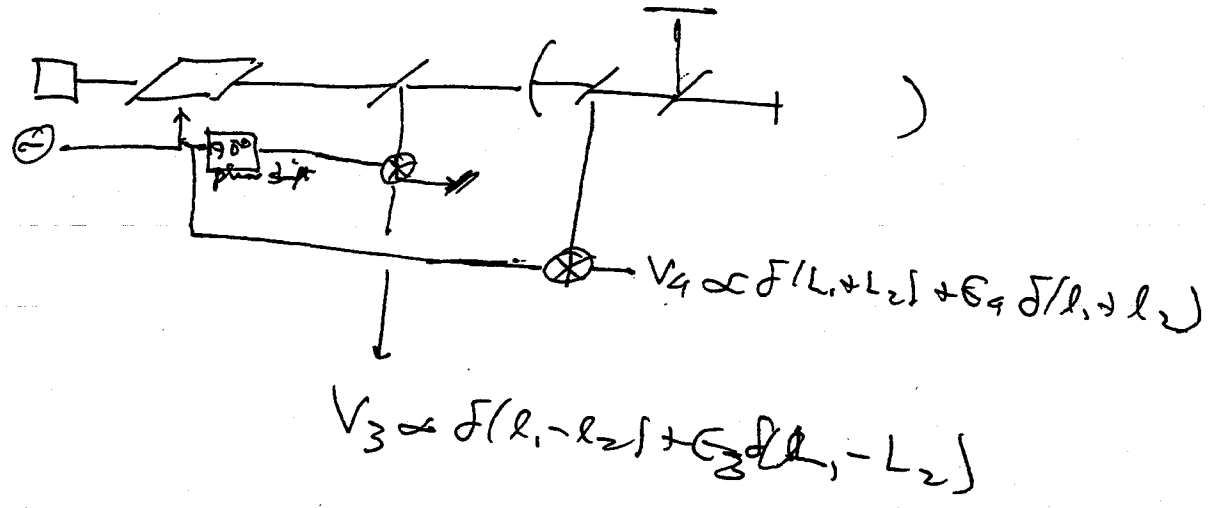 ~
90°
phase shift
V₄ ∝ δ(L₁+L₂) + ϵ₄ δ(l₁+l₂)
V₃ ∝ δ(l₁-l₂) + ϵ₃ δ(L₁-L₂)